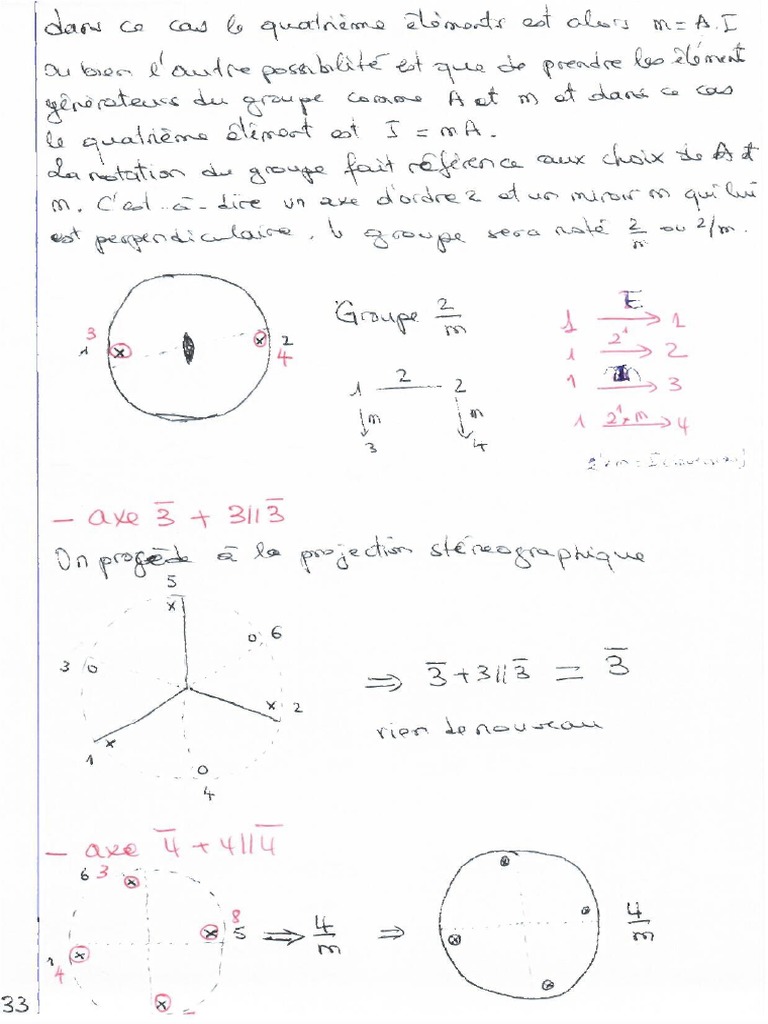 dans ce cas le quatrième éléments est alors m = A.I
Ou bien l'autre possibilité est que de prendre les élément
générateurs du groupe comme A et m et dans ce cas
le quatrième élément est I = mA.
La notation du groupe fait référence aux choix de A et
m. C'est-à-dire un axe d'ordre 2 et un miroir m qui lui
est perpendiculaire, le groupe sera noté 2/m ou 2/m.
3
1
2
4
Groupe 2/m
1 2 2
m m
3 4
1 E 1
1 2¹ 2
1 m 3
1 2¹*m 4
- axe 3̅ + 3//3̅
On procède à la projection stéréographique
5
6
3
2
1
4
⇒ 3̅ + 3//3̅ = 3̅
rien de nouveau
- axe 4̅ + 4//4̅
6 3
8
5
1
4
⇒ 4/m ⇒ 4/m
33